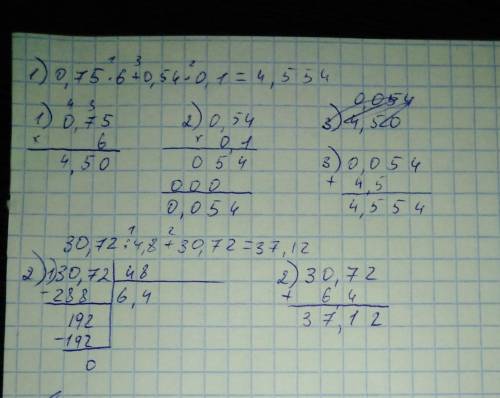 1) 0,75 · 6 + 0,54 · 0,1 = 4,554
1 3 2
1) 0,75
4 3
× 6
4,50
2) 0,54
× 0,1
054
000
0,054
0,054
3) 4,50
3) 0,054
+ 4,5
4,554
30,72 : 4,8 + 30,72 = 37,12
1 2
2) 1) 30,72 | 48
- 288 | 6,4
192
- 192
0
2) 30,72
+ 6 4
37,12